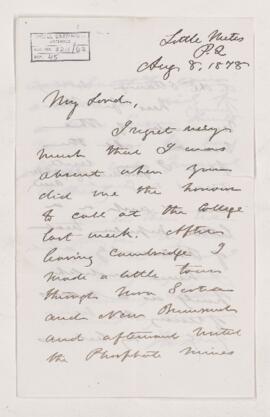 Little Metis
P.Q
Aug 8, 1878
My Lord,
I regret very
much that I was
absent when you
did me the honour
to call at the College
last week. After
leaving Cambridge I
made a little tour
through Nova Scotia
and New Brunswick
and afterward visited
the Phosphate mines